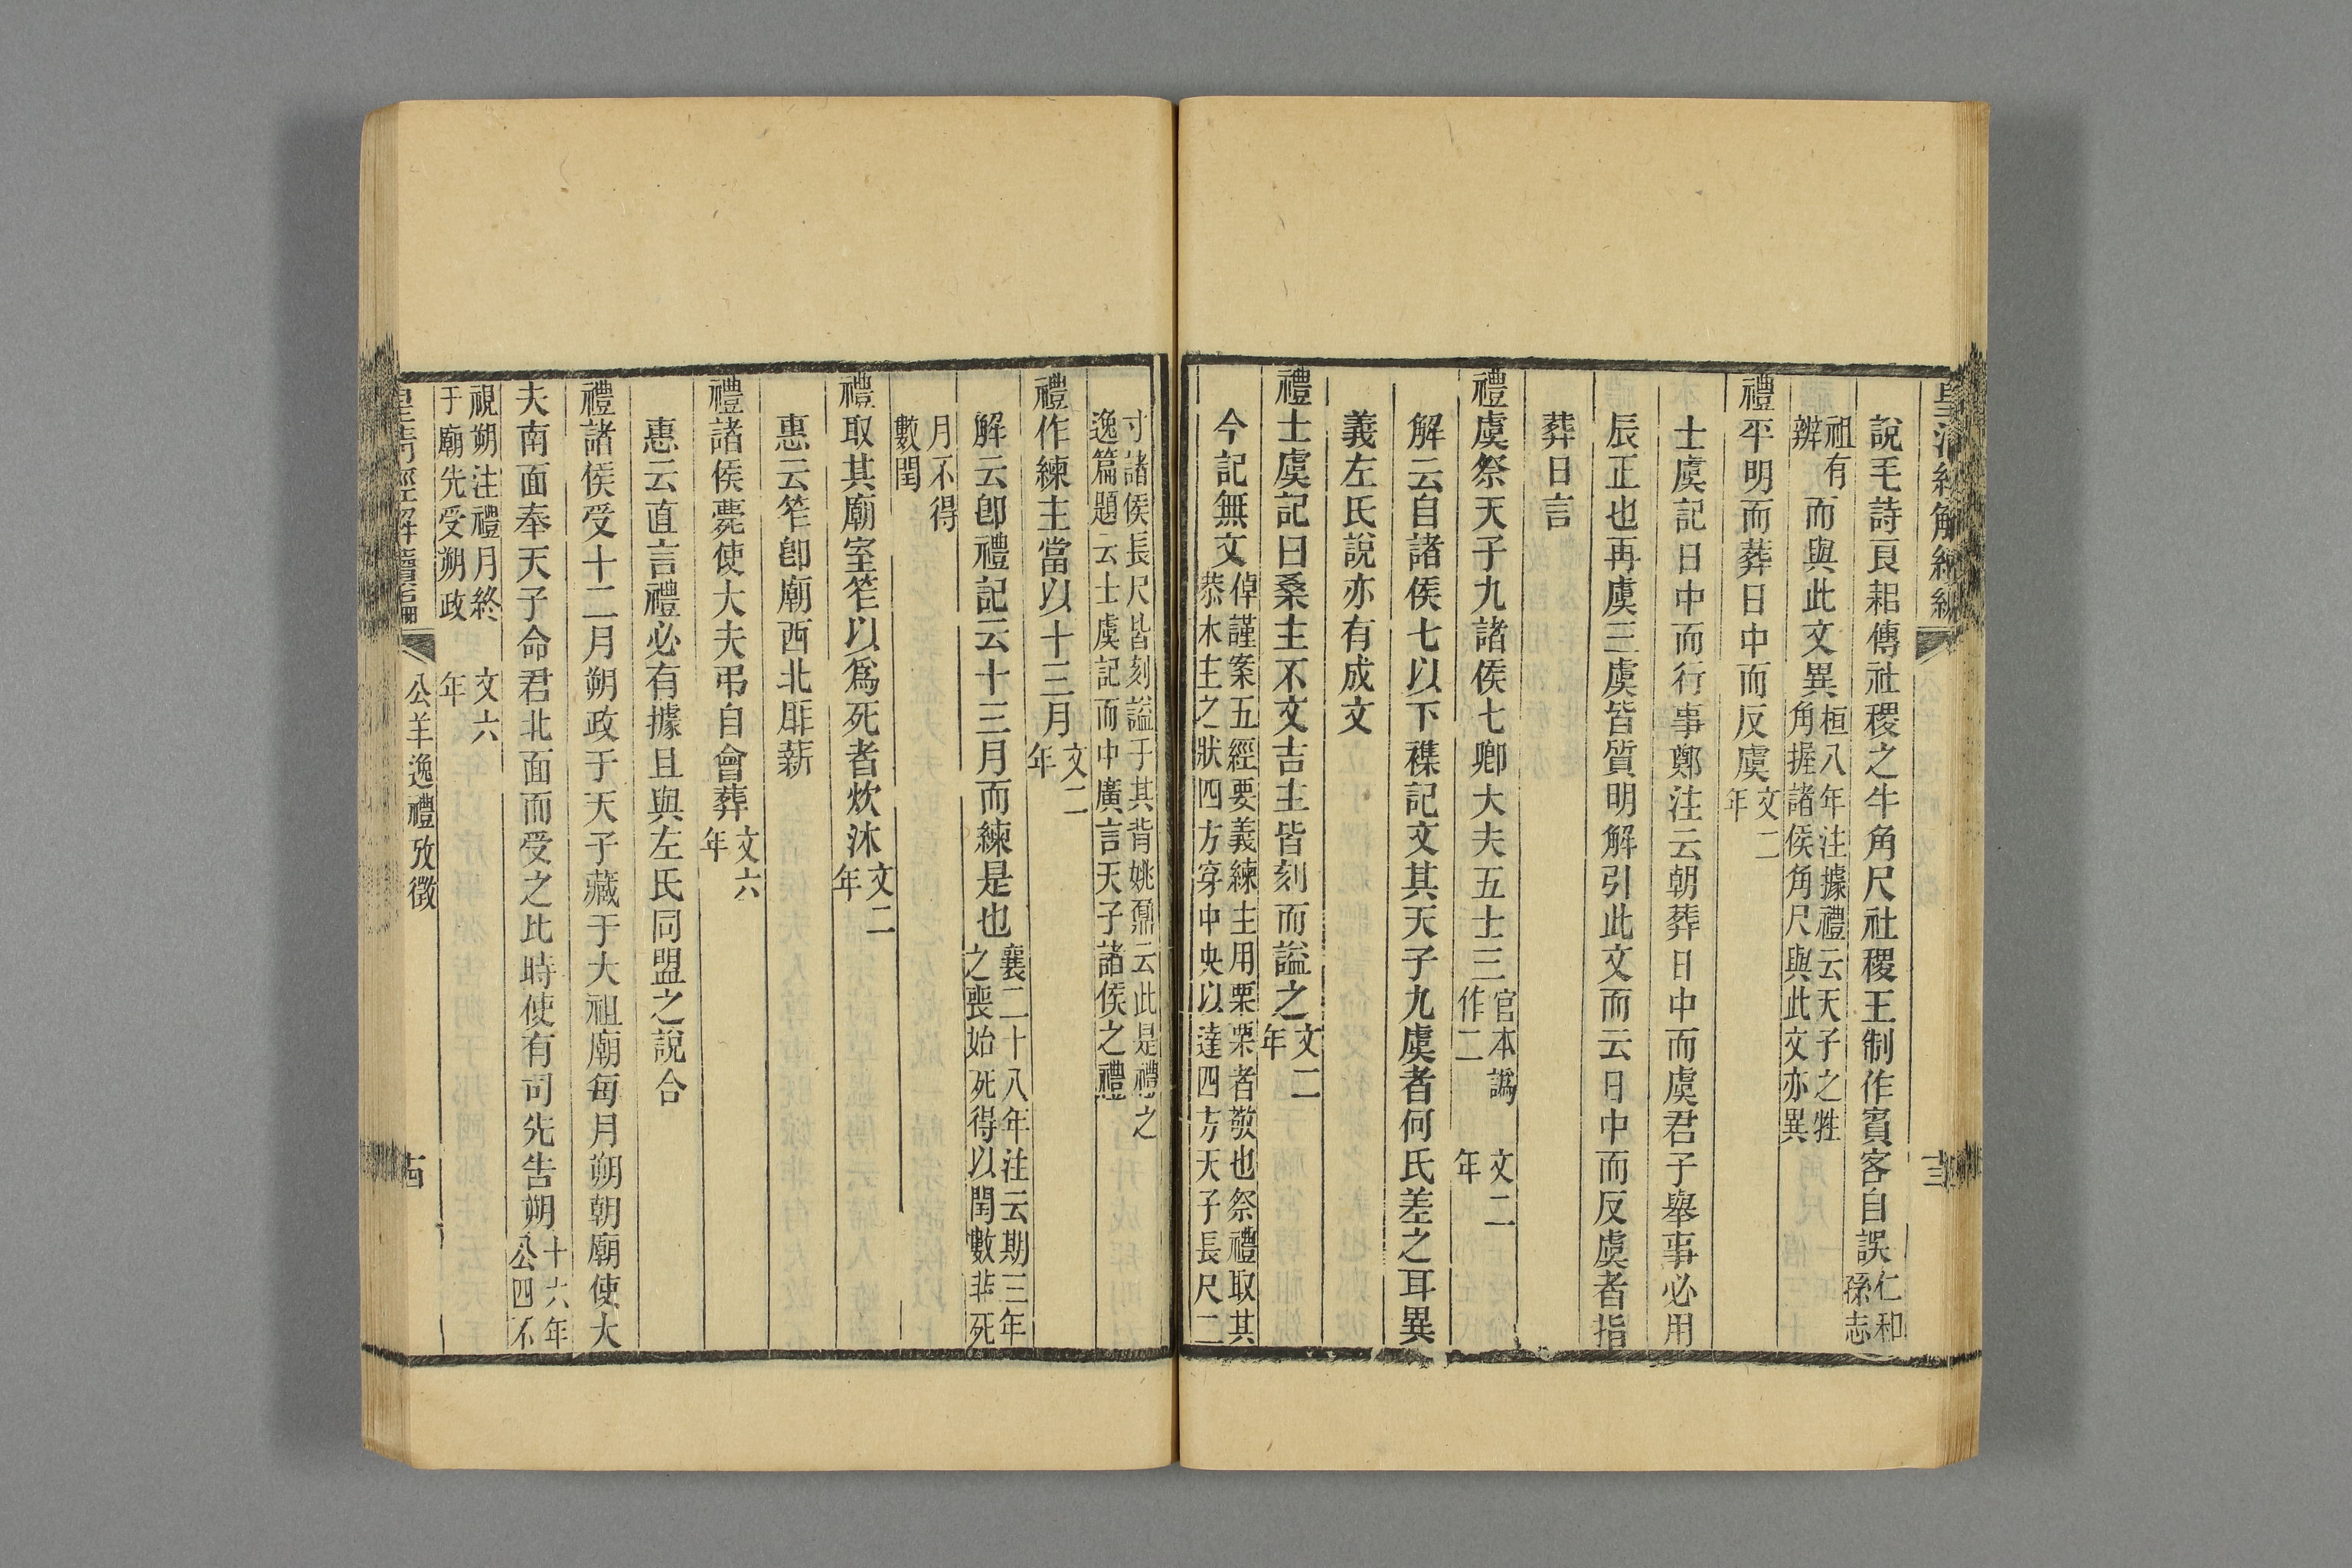 皇清經解續編
說毛詩良耜傳社稷之牛角尺社稷王制作賓客自誤仁和
孫志
祖有
辨
而與此文異桓八年注據禮云天子之牲
角握諸侯角尺與此文亦異
禮平明而葬日中而反虞文二
年
士虞記日中而行事鄭注云朝葬日中而虞君子舉事必用
辰正也再虞三虞皆質明解引此文而云日中而反虞者指
葬日言
禮虞祭天子九諸侯七卿大夫五士三官本譌
作二
文二
年
解云自諸侯七以下襍記文其天子九虞者何氏差之耳異
義左氏說亦有成文
禮士虞記曰桑主不文吉主皆刻而謚之文二
年
今記無文倬謹案五經要義練主用栗栗者敬也祭禮取其
恭木主之狀四方穿中央以達四方天子長尺二
寸諸侯長尺皆刻謚于其背姚鼐云此是禮之
逸篇題云士虞記而中廣言天子諸侯之禮
禮作練主當以十三月文二
年
解云卽禮記云十三月而練是也襄二十八年注云期三年
之喪始死得以閏數非死
月不得
數閏
禮取其廟室笮以爲死者炊沐文二
年
惠云笮卽廟西北厞薪
禮諸侯薨使大夫弔自會葬文六
年
惠云直言禮必有據且與左氏同盟之說合
禮諸侯受十二月朔政于天子藏于大祖廟每月朔朝廟使大
夫南面奉天子命君北面而受之比時使有司先告朔十六年
公四不
視朔注禮月終
于廟先受朔政
文六
年
皇清經解續編
公羊逸禮攷徵